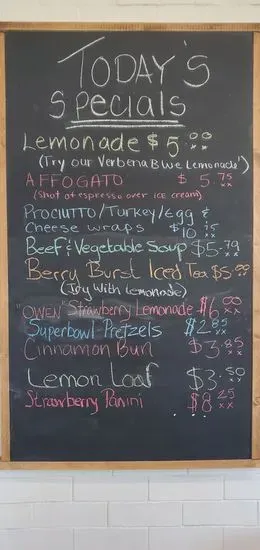 TODAY'S
SPECIALS
Lemonade $5.00
(Try our Verbena B we Lemonade!)
AFFOGATO $5.75
(Shot of espresso over ICE cream)
Prociutto/Turkey/Egg &
Cheese wraps $10.75
Beef & Vegetable Soup $5.79
Berry Burst Iced Tea $5.00
(Try with lemonade)
"OWEN" Strawberry Lemonade $6.00
Superbowl Pretzels $2.85
Cinnamon Bun $3.85
Lemon Loaf $3.50
Strawberry Panini $8.25